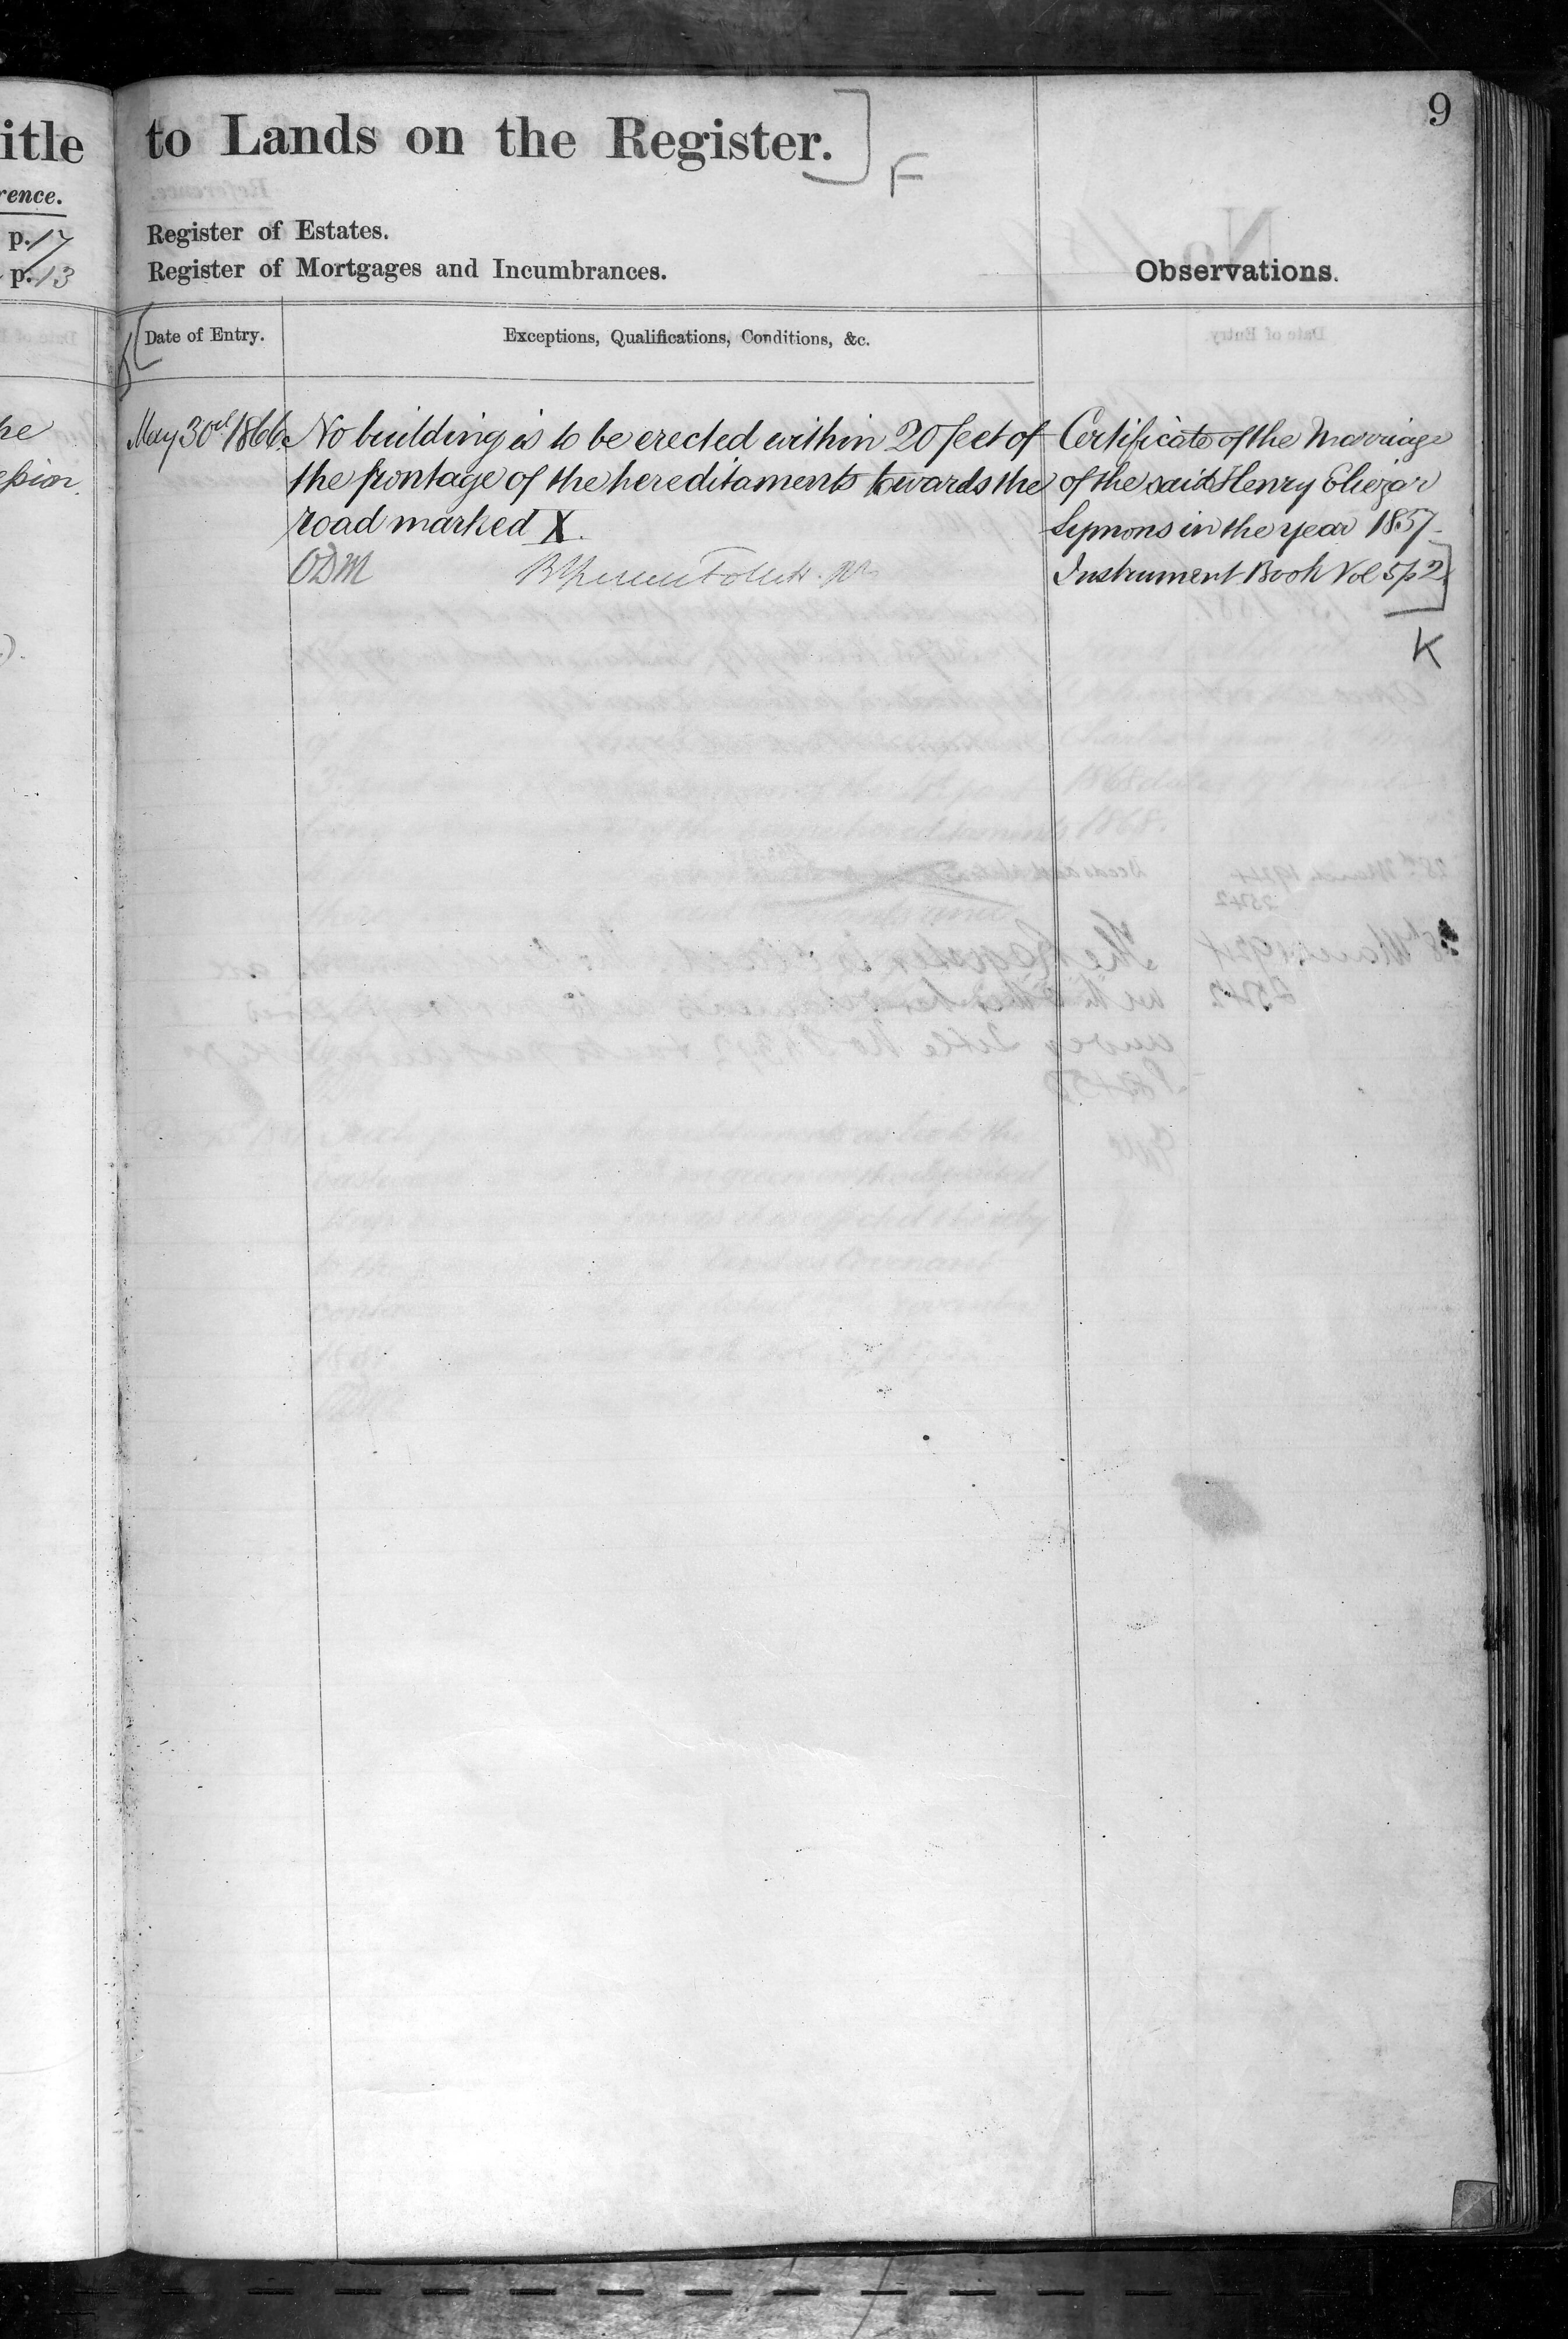 9
itle
to Lands on the Register.
F
rence.
p. 17
p. 13
Register of Estates.
Register of Mortgages and Incumbrances.
Observations.
Date of Entry.
Exceptions, Qualifications, Conditions, &c.
May 30th 1866
No building is to be erected within 20 feet of
the frontage of the hereditaments towards the
road marked X.
ODM
Follett
Certificate of the Marriage
of the said Henry Eliezar
Symons in the year 1857
Instrument Book Vol 5 p 2
K